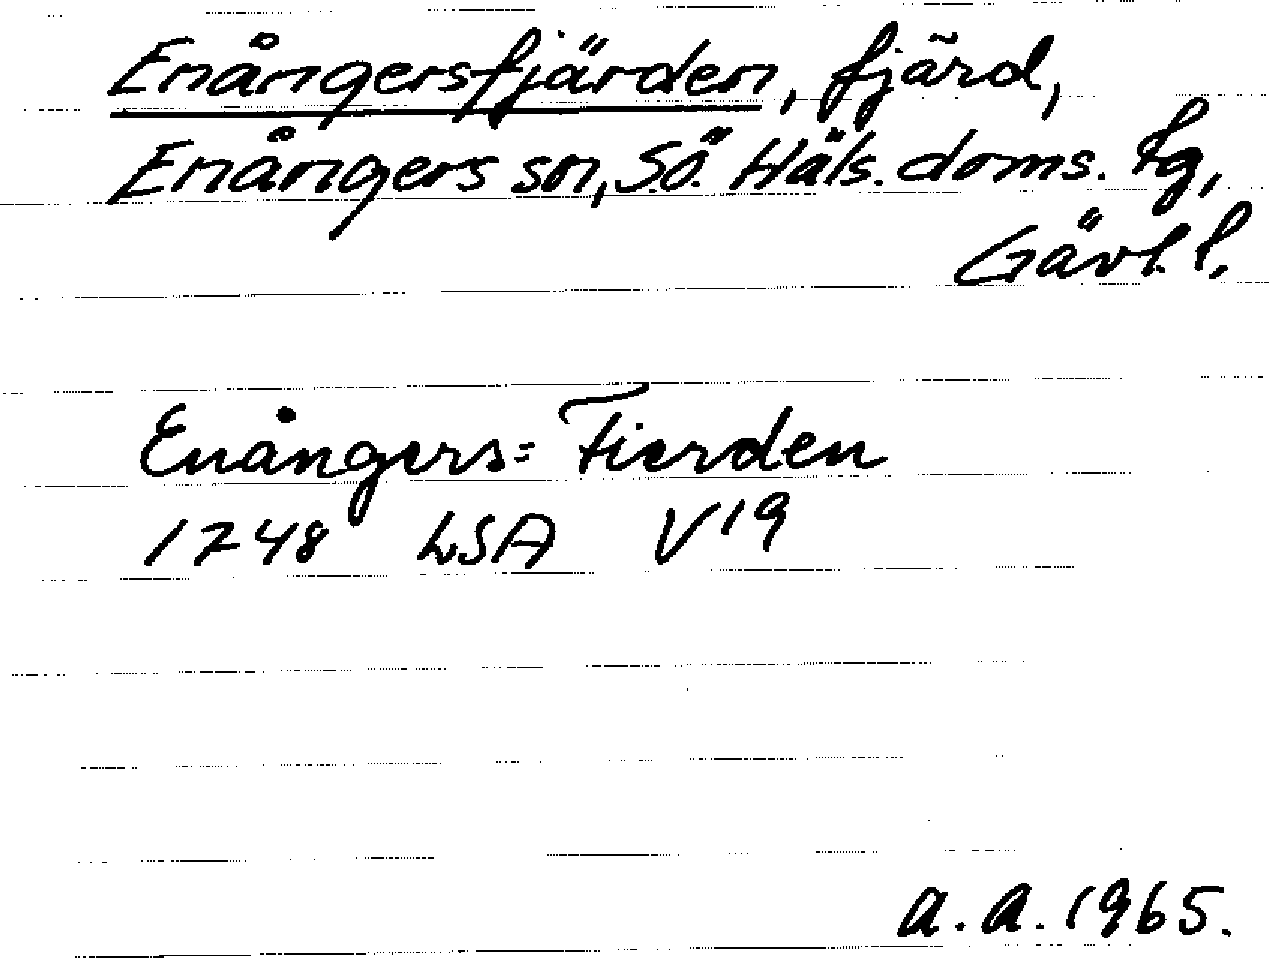 Enångersfjärden, fjärd,
Enångers sn, S.ö. Häls. doms. tg,
Gävl. l.
Enångers= Fierden
1748 LSA V19
A.A. 1965.